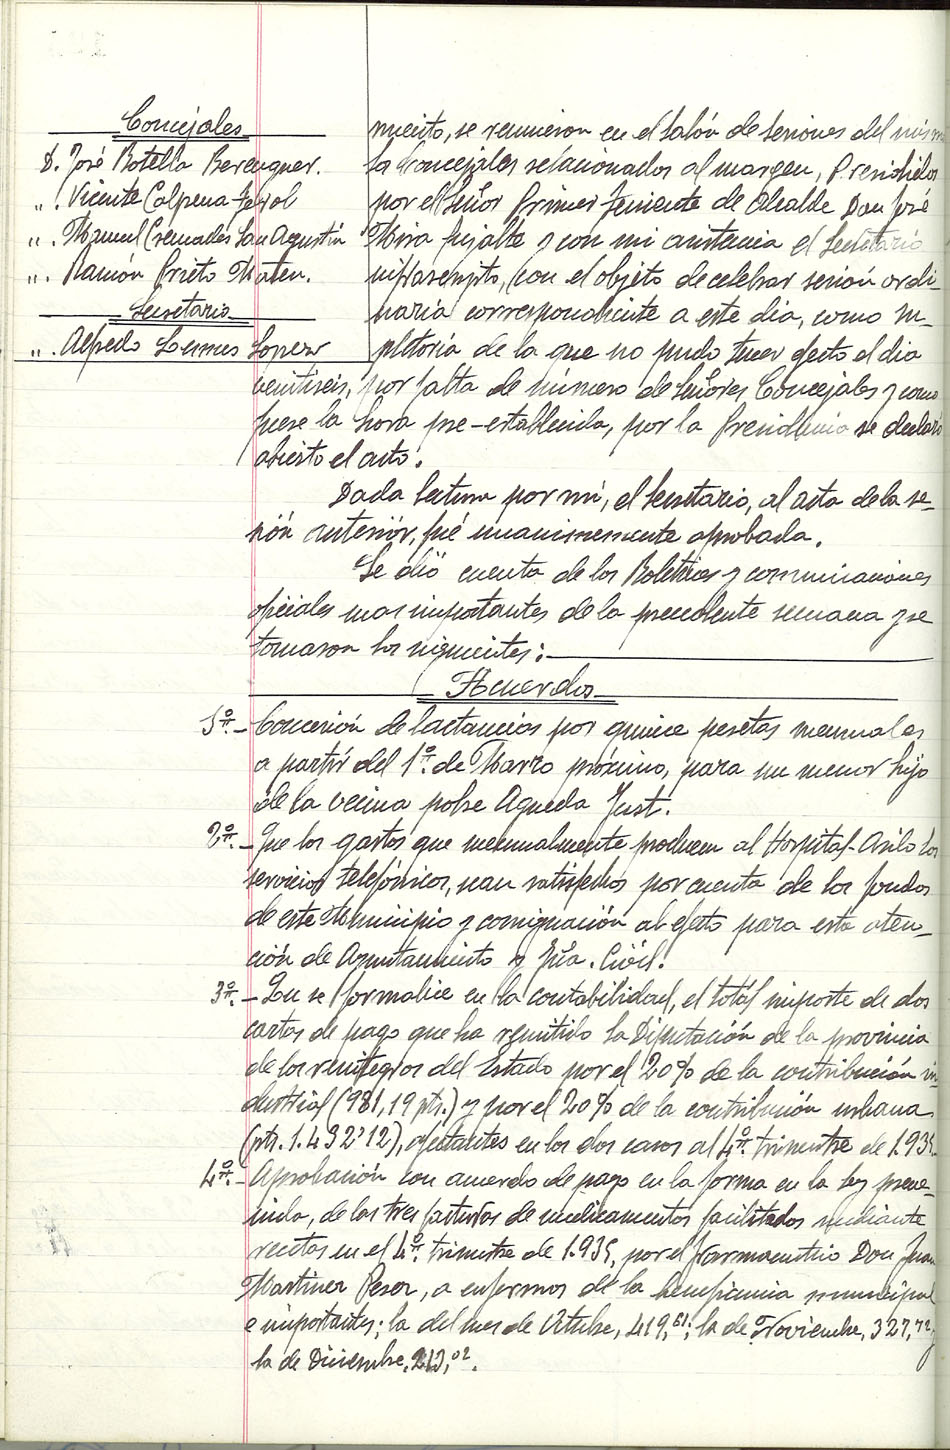 Concejales
D. José Botella Berenguer.
„. Vicente Calpena
„. Manuel Cremades San Agustín
„. Ramón Prieto Maten.
Secretario
„. Alfredo Lopez
miento, se reunieron en el Salón de Sesiones del mismo
Concejales relacionados al margen, Presididos
por el Señor Primer Teniente de Alcalde Don José
Mira y con mi asistencia el Secretario
infrascripto, con el objeto de celebrar sesión ordi-
naria correspondiente a este dia, como su-
pletoria de la que no pudo tener efecto el dia
veintiseis, por falta de número de Señores Concejales y como
fuese la hora pre-establecida, por la Presidencia se declaró
abierto el acto.
Dada lectura por mí, el Secretario, al acta de la se-
sión anteriór, fué unanimemente aprobada.
Se dió cuenta de los Boletines y comunicaciones
oficiales mas importantes de la precedente semana y se
tomaron los siguientes:
Acuerdos
1º.- Concesión de lactancias por quince pesetas mensuales
a partír del 1º. de Marzo próximo, para un menor hijo
de la vecina pobre Agueda Just.
2º.- Que los gastos que mensualmente producen al Hospital-Asilo los
servicios telefónicos, sean satisfechos por cuenta de los fondos
de este Municipio y consignación al efecto para esta aten-
ción de Ayuntamiento y Civíl.
3º.- Que se formalice en la contabilidad, el totál importe de dos
cartas de pago que ha remitido la Diputación de la provincia
de los reintegros del Estado por el 20% de la contribución in-
dustrial (981,19 pts.) y por el 20% de la contribución urbana
(pts. 1.492'12), afectantes en los dos casos al 4º. trimestre de 1.935.
4º.- Aprobación con acuerdo de pago en la forma en la Ley preve-
nida, de las tres facturas de medicamentos facilitados mediante
recetas en el 4º. trimestre de 1.935, por el Farmacéutico Don Juan
Martinez Peser, a enfermos de la beneficencia municipal
e importantes; la del mes de Octubre, 419,51; la de Noviembre, 327,72,
la de Diciembre, 213,02.